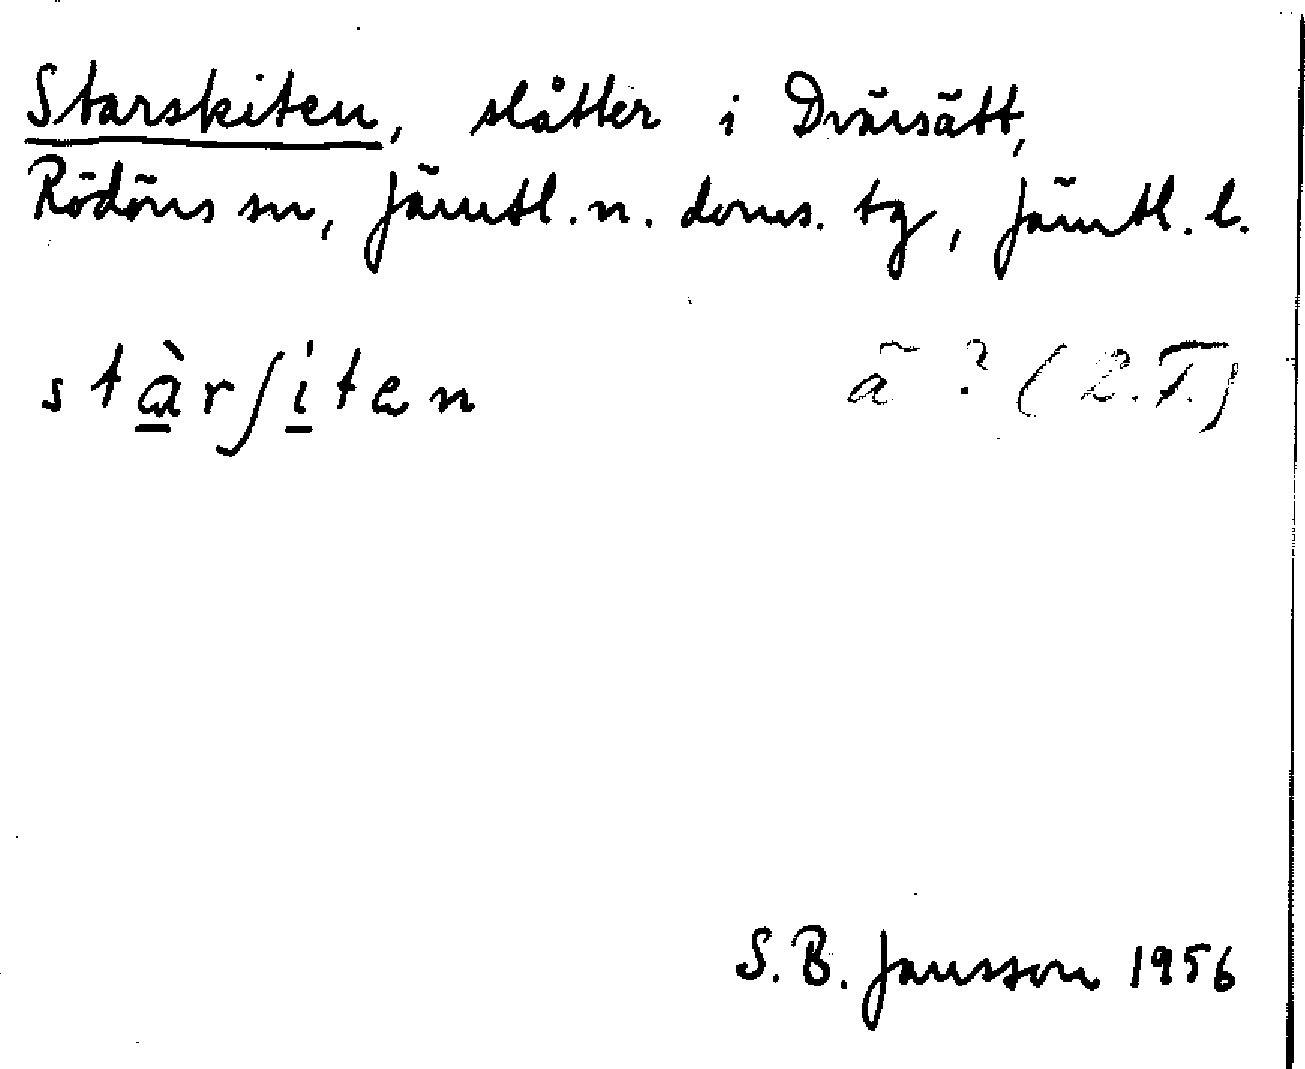 Starskiten, slåtter i Dvärsätt,
Rödöns sn, Jämtl. n. doms. tg, Jämtl. l.
stàrʃiten ā ? (2.F.)
S. B. Jansson 1956